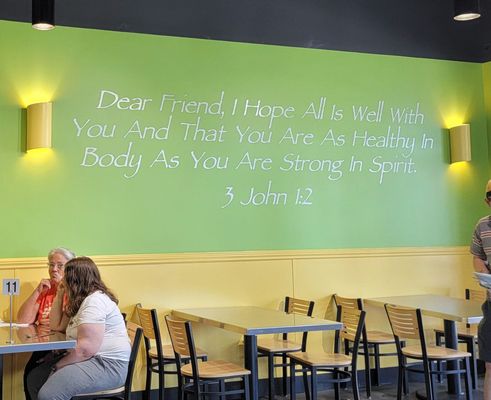 Dear Friend, I Hope All Is Well With
You And That You Are As Healthy In
Body As You Are Strong In Spirit.
3 John 1:2
11